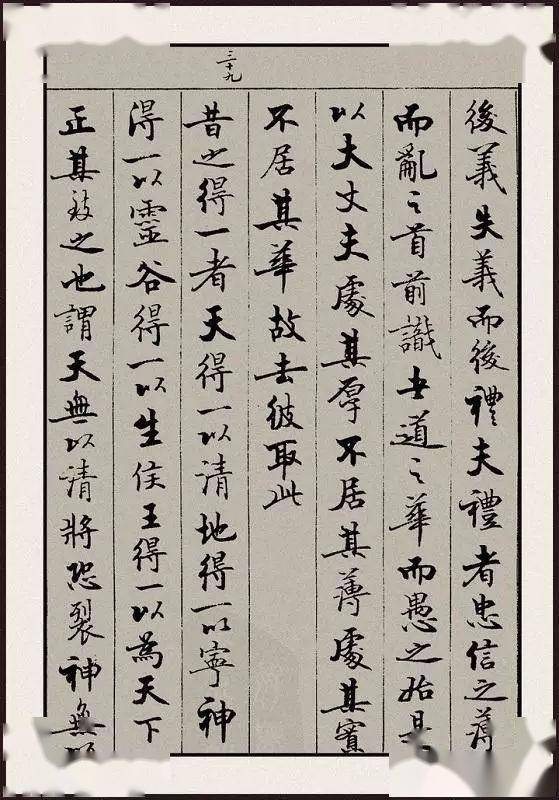 後義失義而後禮夫禮者忠信之薄
而亂之首前識者道之華而愚之始是
以大丈夫處其厚不居其薄處其實
不居其華故去彼取此
三十九
昔之得一者天得一以清地得一以寧神
得一以靈谷得一以生侯王得一以為天下
正其致之也謂天無以清將恐裂神無以